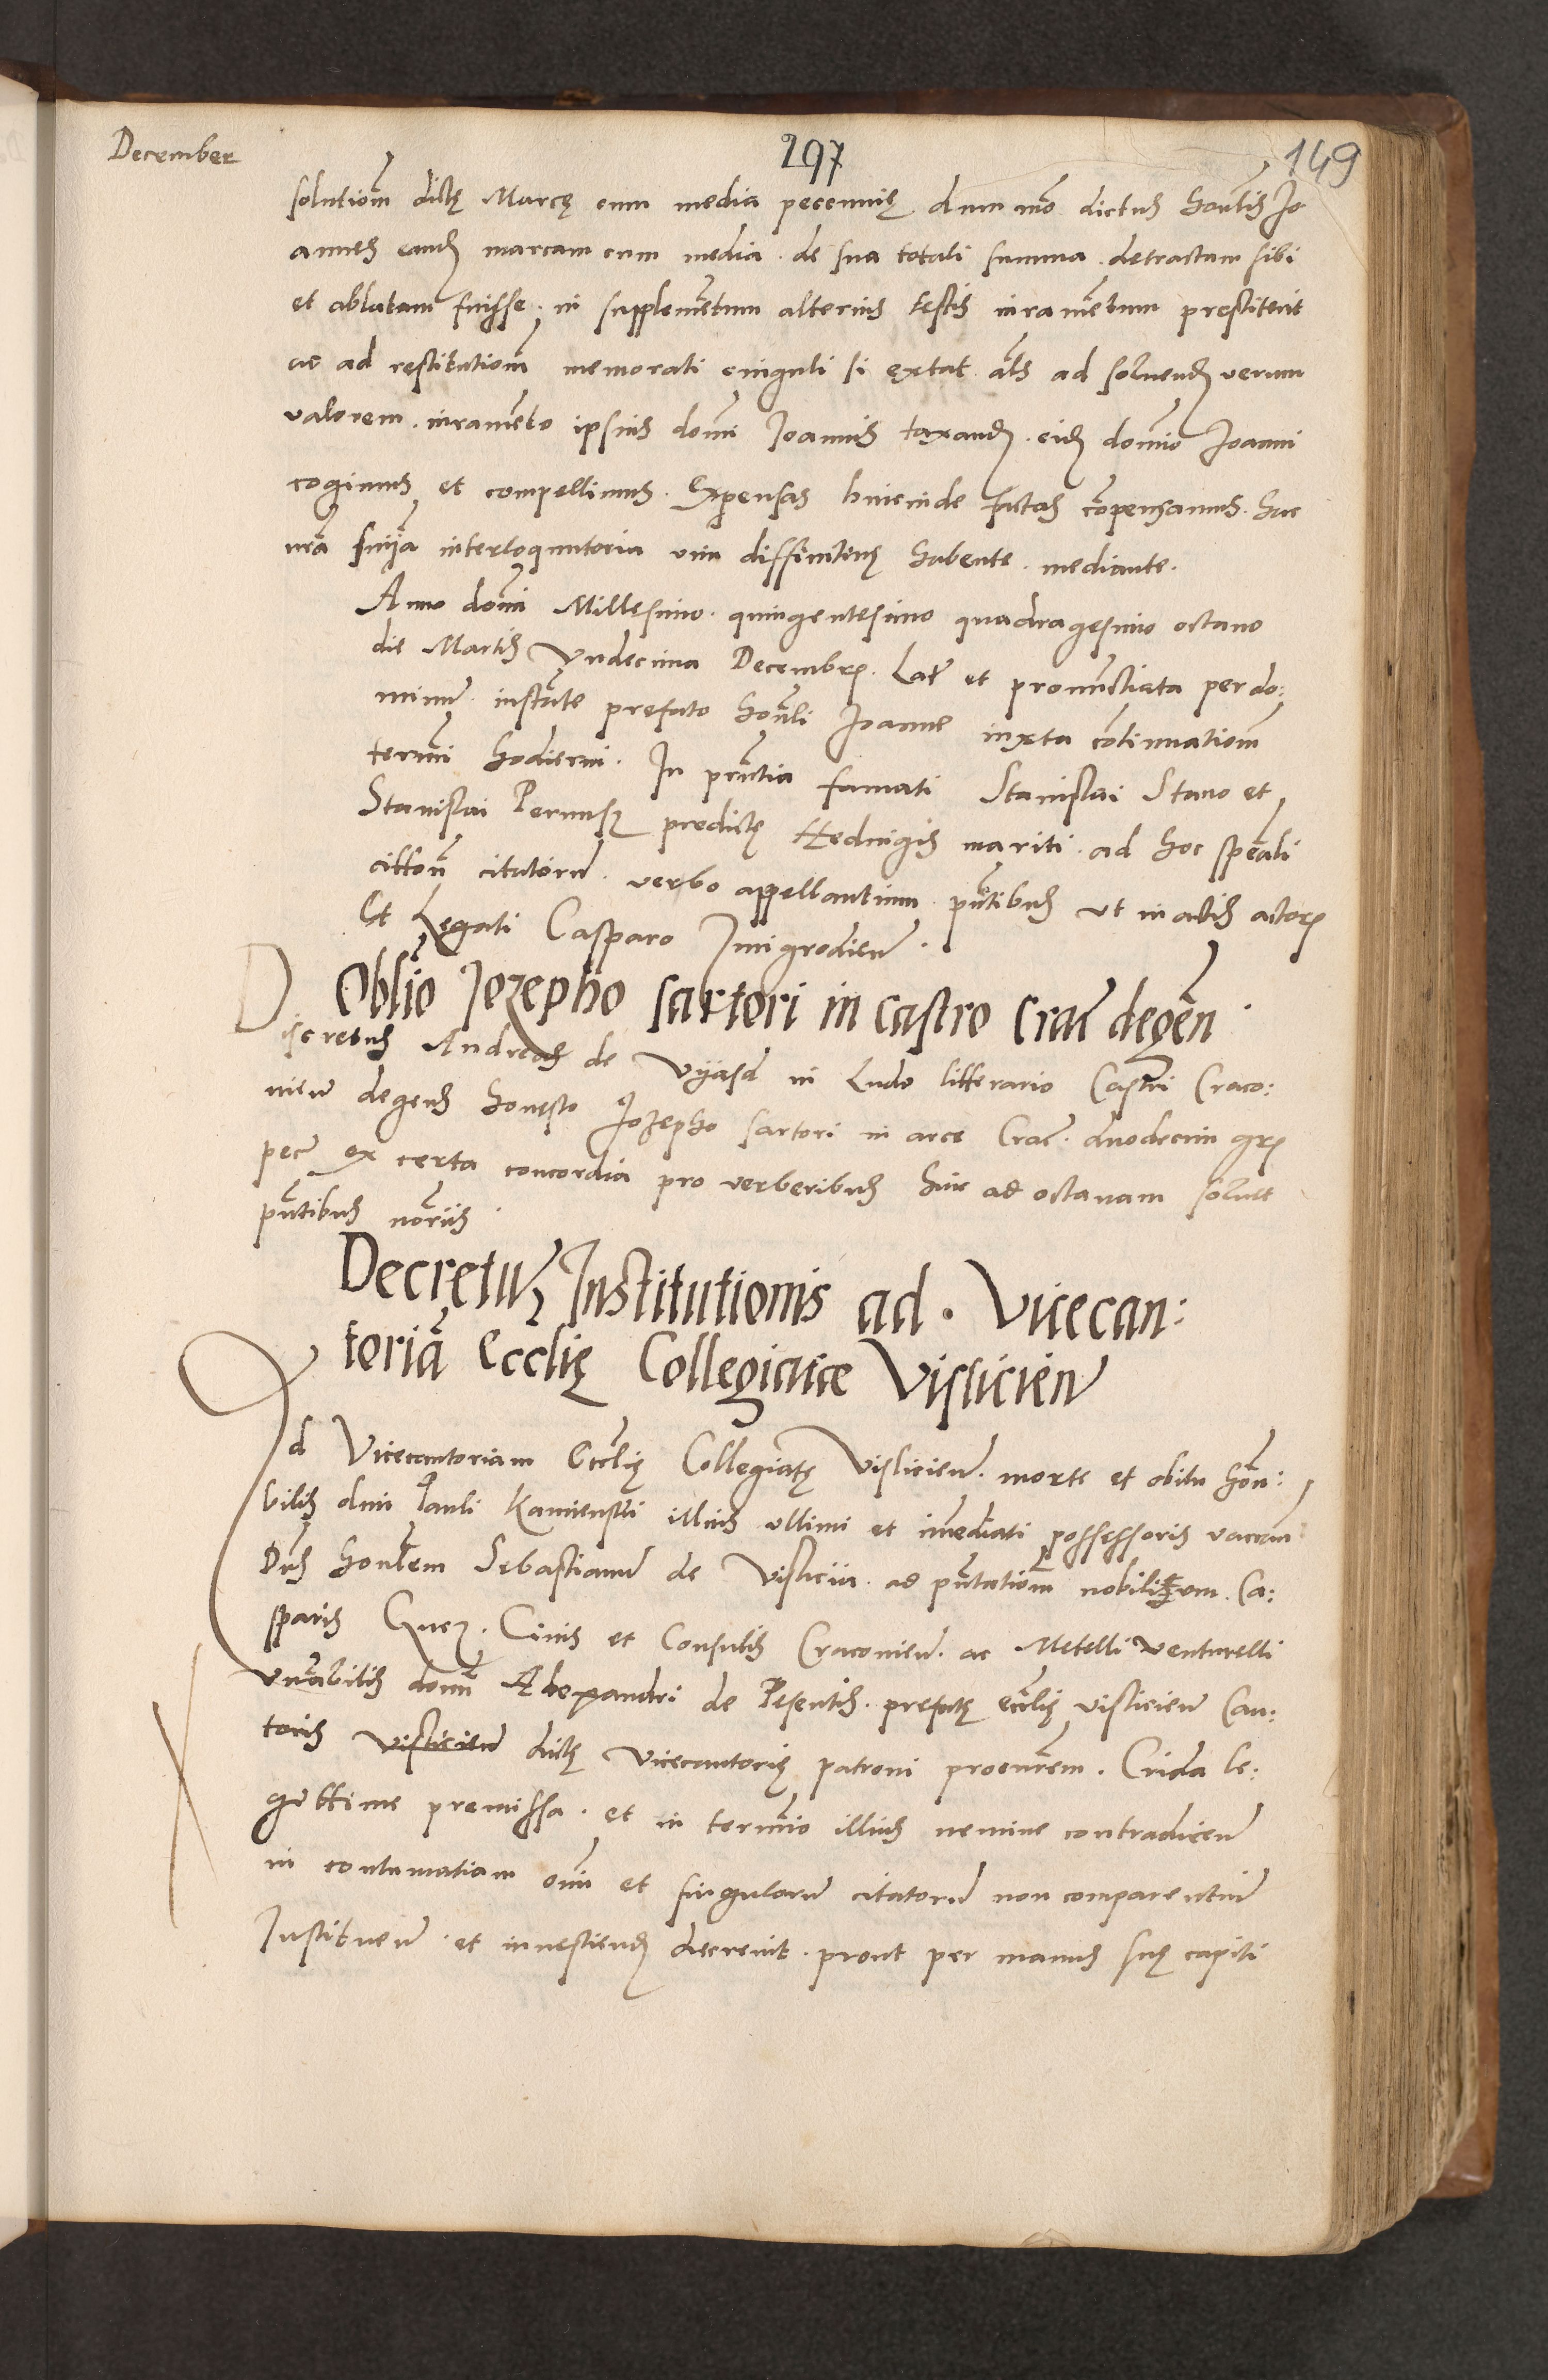 December
297
149
solutiom̄ dictę Marcę cum media pecunnię dum mō dictus Hon̄lis Jo
annes eand̄ marcam cum media . de sua totali summa . detractam sibi
et ablatam fuisse . in supplemētum alterius testis iuramētum prestiterit
ac ad restitutiom̄ memorati cinguli si extat al̄s ad soluend̄ verum
valorem . iuramēto ipsius dom̄i Joannis taxand̄ . eid̄ domīo Joanni
cogimus et compellimus . Expensas hincinde factas cōpensamus . hac
nrā sn̄ija interloquutoria vim diffinitiuę habente . mediante .
Anno dom̄i Millesimo . quingentesimo quadragesimo octauo
die Martis Vndecima Decembrꝭ . Lat̄ et pronūctiata per do:
minū instāte prefato Hon̄li Joanne iuxta cōtinuatiom̄
term̄i hodierni . In prn̄tia famati Stanislai Stano et
Stanislai predictę Hedwigis mariti . ad hoc spēali
citton̄ citatorū . verbo appellantium . pn̄tibus vt in actis actorꝭ
Et Legati Casparo Imigrodien̄ .
Oblīo Jozepho sartori in castro Crac̄ degēn .
Discretus Andreas de Vyasd in Ludo litterario Castri Craco:
nien̄ degens honesto Jozepho sartori in arce Crac̄ . duodecim grꝭ
pec̄ ex certa concordia pro verberibus hinc ad octauam soluet
pn̄tibus nōriis .
Decretum̄ Institutionis ad . Vicecan:
toriā Eccl̄ię Collegiatæ Vislicien̄
Ad Vicecantoriam Eccl̄ię Collegiatę Vislicien̄ . morte et obitu hōn:
bilis dn̄i Pauli Kamienski illius vltimi et im̄ediati possessoris vacan̄
Dn̄s honl̄em Sebastianū de Vislicia . ad pn̄tatiom̄ nobilium . Ca:
sparis Guczi . Ciuis et Consulis Cracouien̄ . ac Metelli Venturelli
vn̄rabilis dom̄i Alexandri de Pesentis . prefatę eccl̄ię vislicien̄ Can:
toris vislicien̄ dictę vicecantorię patroni procur̄em . Crida le:
gittime premissa . et in termīo illius nemine contradicen̄
in contumatiam om̄i et singulorū citatorū non comparentiū
Instituen̄ . et inuestiend̄ decreuit . prout per manus suę capiti